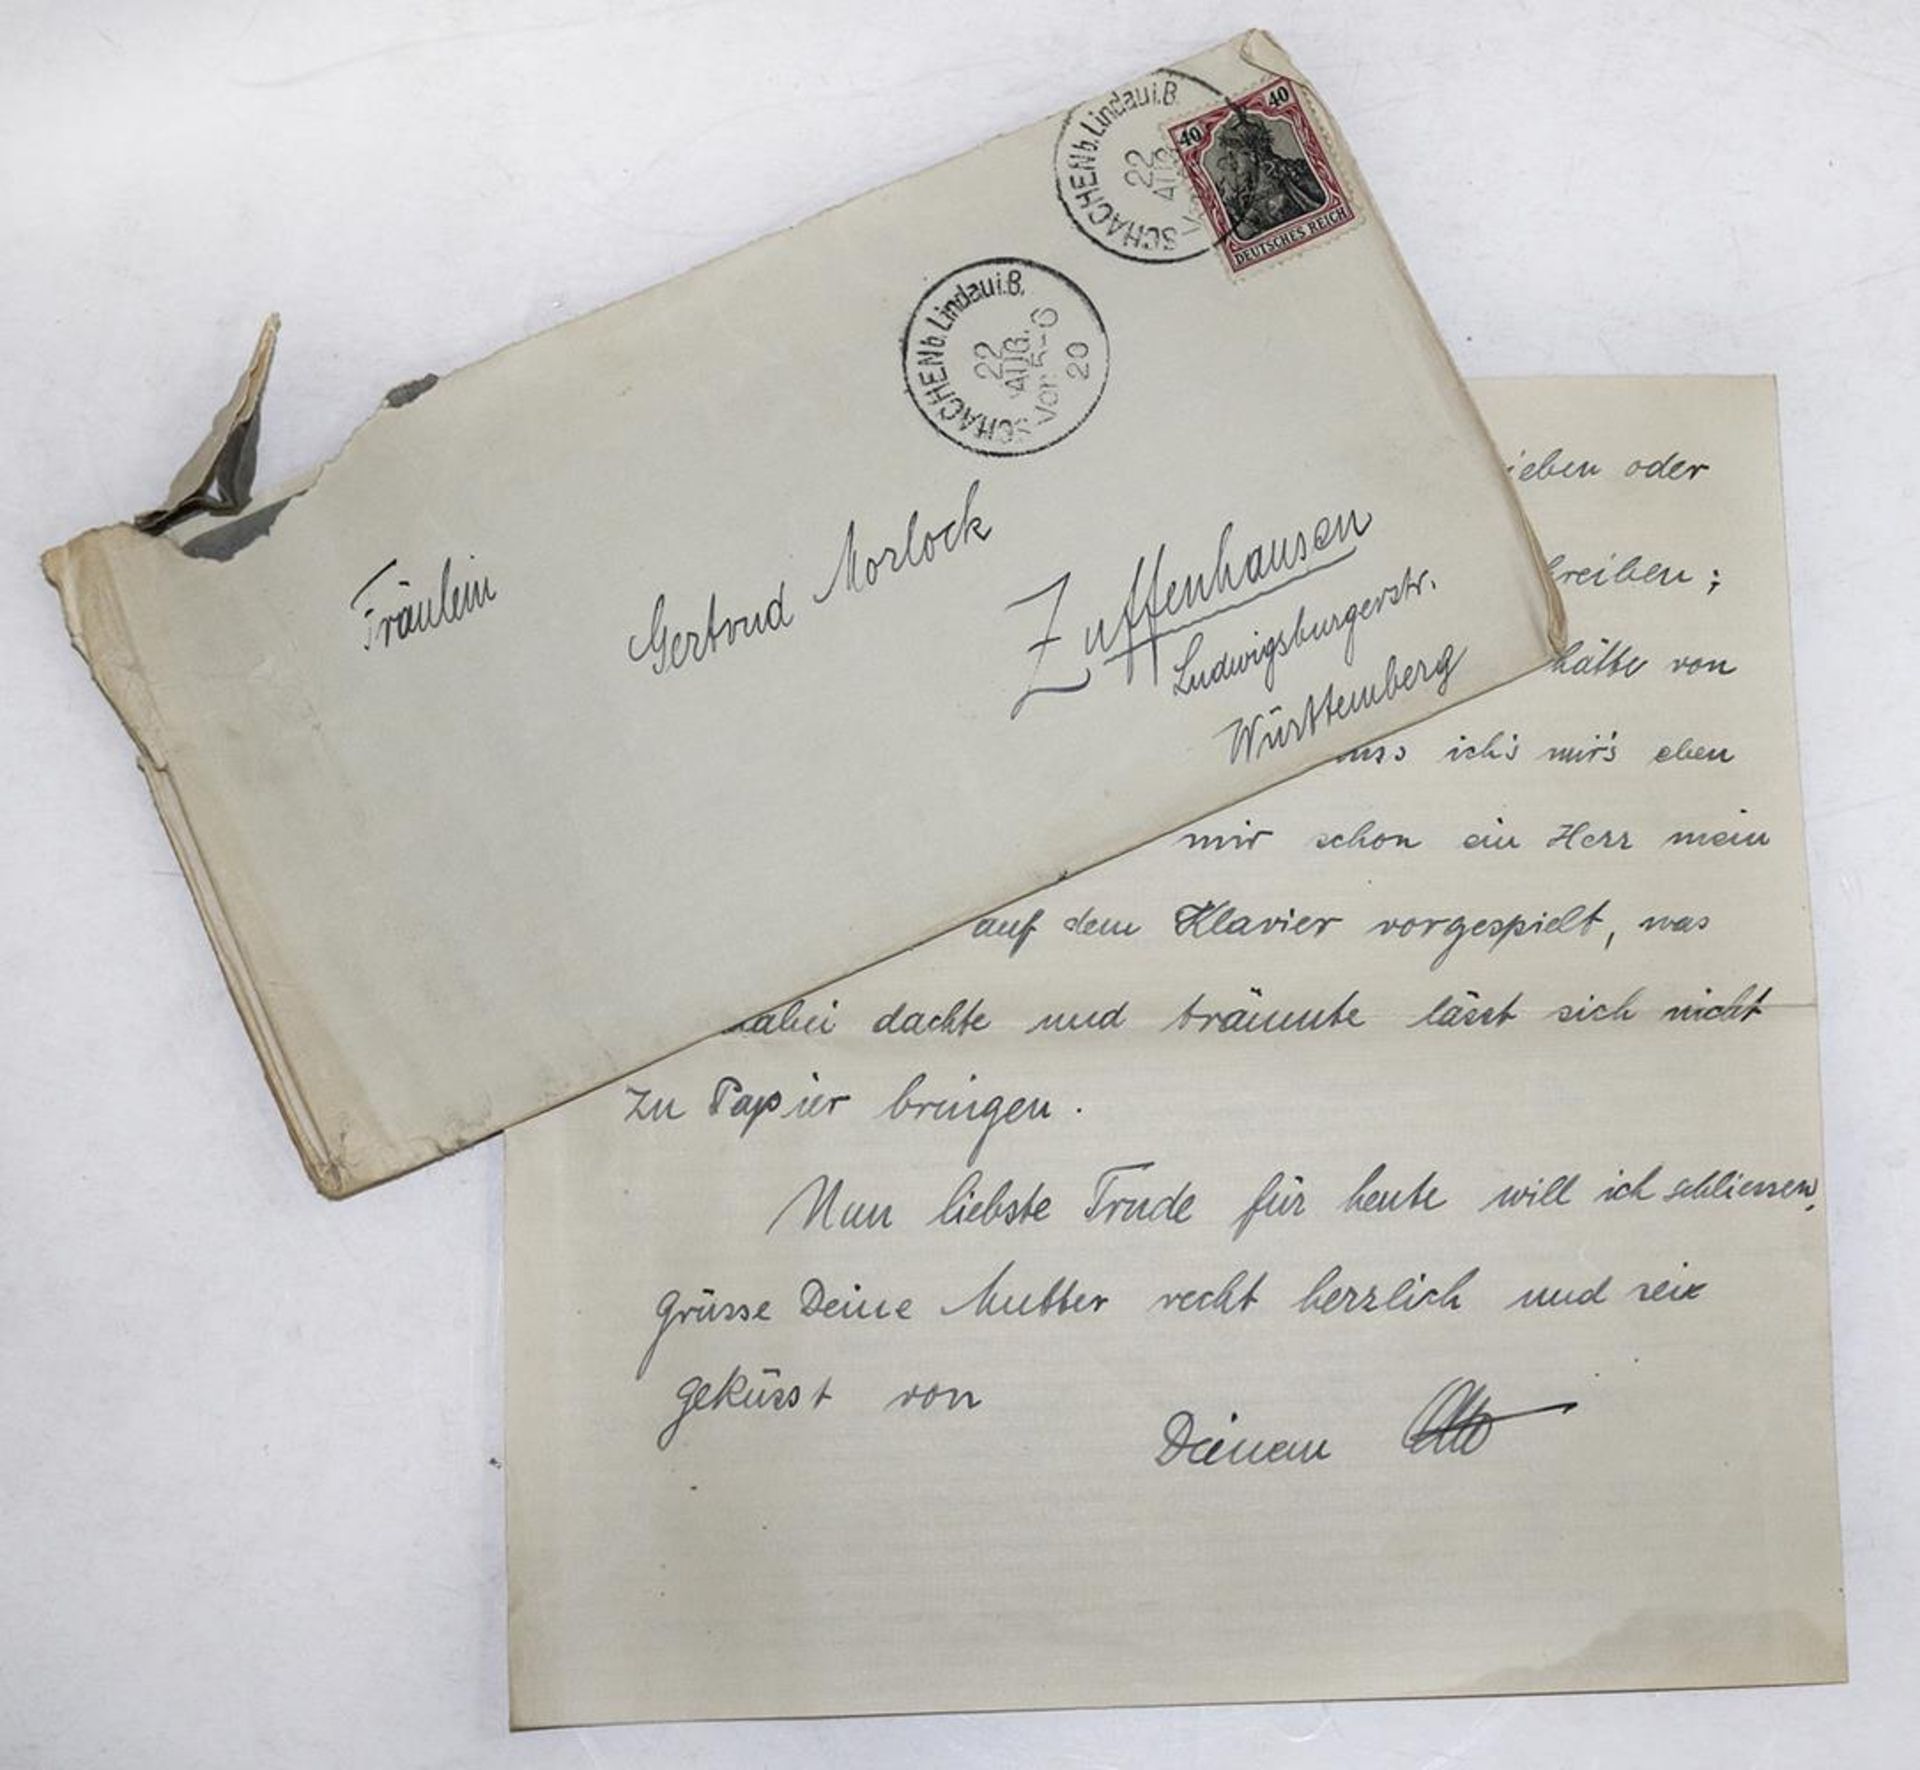 SCHACHEN b. Lindau i. B.
22
AUG.
40
40
DEUTSCHES REICH
SCHACHEN b. Lindau i. B.
22
AUG.
Vor. 5-6
20
Fräulein
Gertrud Morlock
Zuffenhausen
Ludwigsburgerstr.
Württemberg
ieben oder
hreiben;
hätte von
uss ich's mir's eben
mir schon ein Herr mein
auf dem Klavier vorgespielt, was
abei dachte und träumte lässt sich nicht
zu Papier bringen.
Nun liebste Trude für heute will ich schliessen,
grüsse Deine Mutter recht herzlich und sei
geküsst von
Deinem Otto